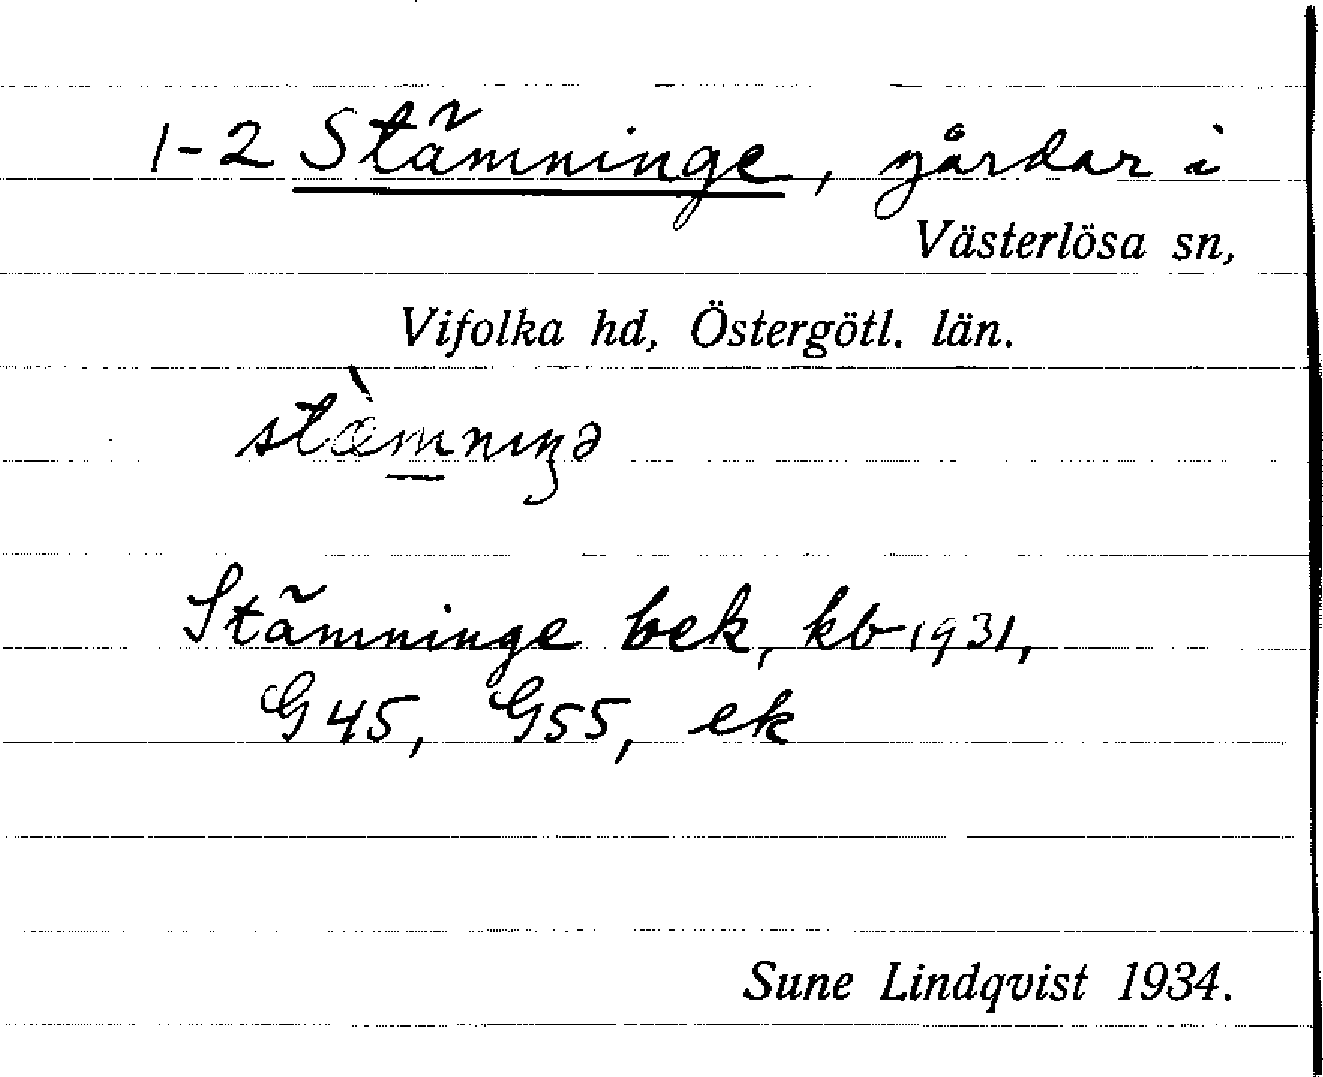 1-2 Stämninge, gårdar i
Västerlösa sn,
Vifolka hd, Östergötl. län.
stæ̀mnıŋə
Stämninge bek, kb 1931,
G45, G55, ek
Sune Lindqvist 1934.